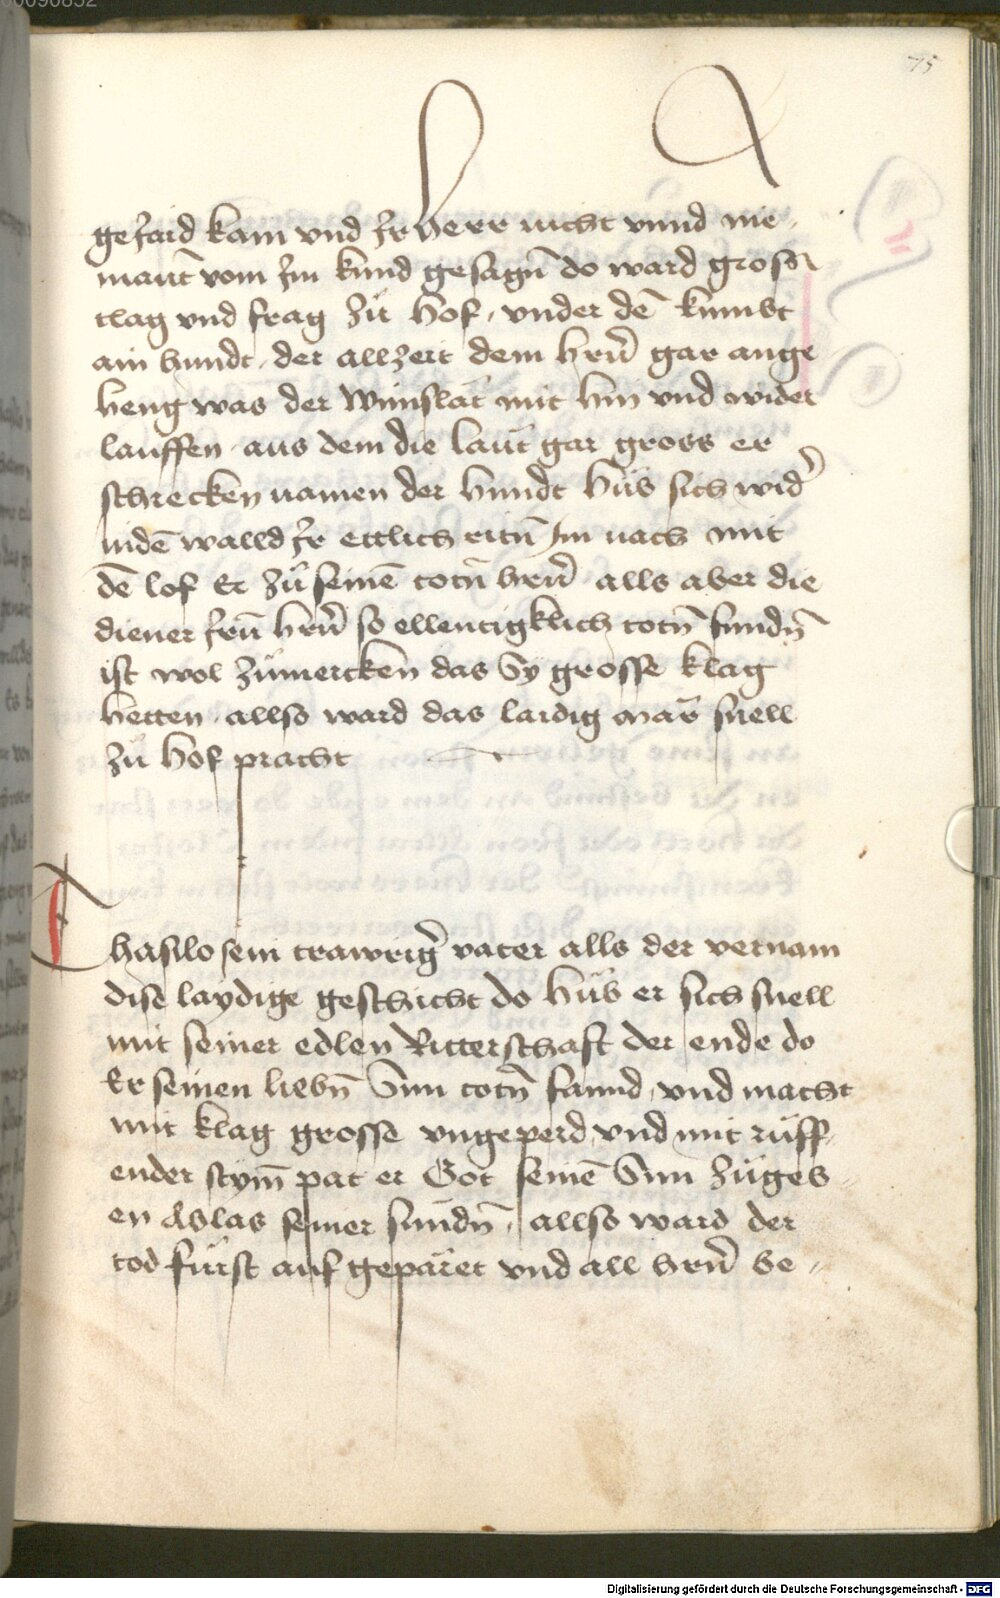 00090852
75
gejaid kam vnd Jr herr nicht vnnd nie-
mant vom Jm kund gesagn̄ do ward gross
clag vnd frag zů hof, vnder dē kumbt
ain hundt, der allzeit dem hrn̄ gar ange
heng was der winslat mit hin vnd wider
lauffen, aus dem die laut gar gross er
schrecken namen der hundt hůb sich wid̄
indē walld Jr ettlich ritn̄ Jm nach mit
dē lof Er zů seinē totn̄ hrn̄ alls aber die
diener Jrn̄ hrn̄ so ellentigklich totn̄ fundn̄
ist wol zůmercken das Sy grosse klag
hetten, allso ward das laidig mär snell
zů hof pracht
Thasilo sein trawriḡ vater alls der vernam
dise laydige geschicht do hůb er sich snell
mit seiner edlen Ritterschaft der ende do
Er seinen liebn̄ Sun totn̄ fannd, vnd macht
mit klag grosse vngeperd, vnd mit růff-
ender stym̄ pat er Got seinē Sun zůgeb-
en Ablas seiner sundn̄, allso ward der
tod fürst auf gepäret vnd all hrn̄ be-
Digitalisierung gefördert durch die Deutsche Forschungsgemeinschaft - DFG